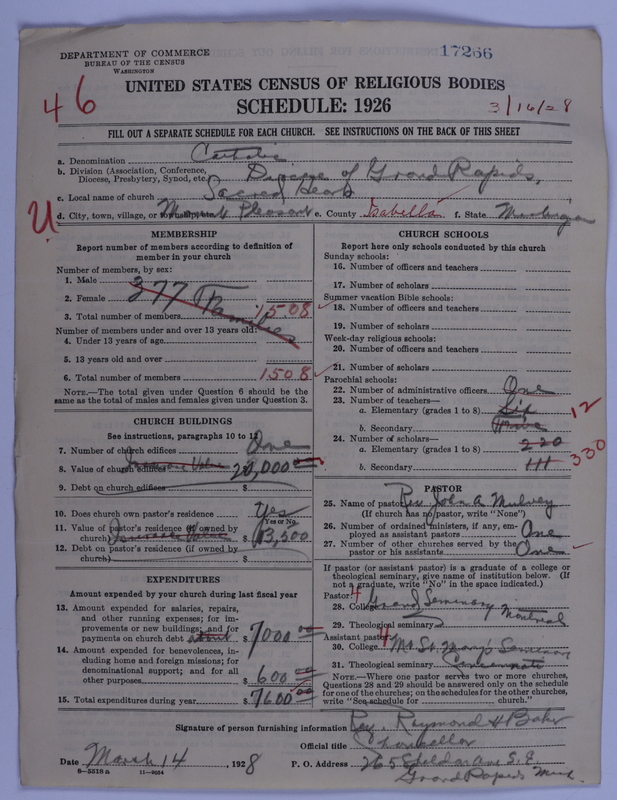 17266
DEPARTMENT OF COMMERCE
BUREAU OF THE CENSUS
WASHINGTON
UNITED STATES CENSUS OF RELIGIOUS BODIES
46
SCHEDULE: 1926
3/16/28
FILL OUT A SEPARATE SCHEDULE FOR EACH CHURCH. SEE INSTRUCTIONS ON THE BACK OF THIS SHEET
a. Denomination Catholic
b. Division (Association, Conference, Diocese, Presbytery, Synod, etc.) Diocese of Grand Rapids,
c. Local name of church Sacred Heart
U
d. City, town, village, or township Mount Pleasant e. County Isabella f. State Michigan
MEMBERSHIP
Report number of members according to definition of
member in your church
Number of members, by sex:
1. Male
377 Families
2. Female
3. Total number of members 1508
Number of members under and over 13 years old:
4. Under 13 years of age
5. 13 years old and over
6. Total number of members 1508
NOTE.—The total given under Question 6 should be the
same as the total of males and females given under Question 3.
CHURCH BUILDINGS
See instructions, paragraphs 10 to 12
7. Number of church edifices One
8. Value of church edifices Insurance Value $ 20,000
9. Debt on church edifices $
10. Does church own pastor's residence? Yes
(Yes or No)
11. Value of pastor's residence (if owned by
church) Insurance Value $ 13,500
12. Debt on pastor's residence (if owned by
church) $
EXPENDITURES
Amount expended by your church during last fiscal year
13. Amount expended for salaries, repairs,
and other running expenses; for im-
provements or new buildings; and for
payments on church debt $ 7000
14. Amount expended for benevolences, in-
cluding home and foreign missions; for
denominational support; and for all
other purposes $ 600 00
15. Total expenditures during year $ 7600 00
CHURCH SCHOOLS
Report here only schools conducted by this church
Sunday schools:
16. Number of officers and teachers
17. Number of scholars
Summer vacation Bible schools:
18. Number of officers and teachers
19. Number of scholars
Week-day religious schools:
20. Number of officers and teachers
21. Number of scholars
Parochial schools:
22. Number of administrative officers One
23. Number of teachers—
a. Elementary (grades 1 to 8) Six
12
b. Secondary
24. Number of scholars—
a. Elementary (grades 1 to 8) 220
330
b. Secondary 111
PASTOR
25. Name of pastor Rev. John A. Mulvey
(If church has no pastor, write "None")
26. Number of ordained ministers, if any, em-
ployed as assistant pastors One
27. Number of other churches served by the
pastor or his assistants One
If pastor (or assistant pastor) is a graduate of a college or
theological seminary, give name of institution below. (If
not a graduate, write "No" in the space indicated.)
Pastor: 4
28. College Grand Seminary Montreal
29. Theological seminary
Assistant pastor: 4
30. College Mt. St. Mary's Seminary
31. Theological seminary Cincinnati
NOTE.—Where one pastor serves two or more churches,
Questions 28 and 29 should be answered only on the schedule
for one of the churches; on the schedules for the other churches,
write "See schedule for church."
Signature of person furnishing information Rev. Raymond H Baker
Official title Chancellor
Date March 14, 1928 P. O. Address 265 Sheldon Ave S. E.
8—5318 a 11—9054
Grand Rapids Mich.